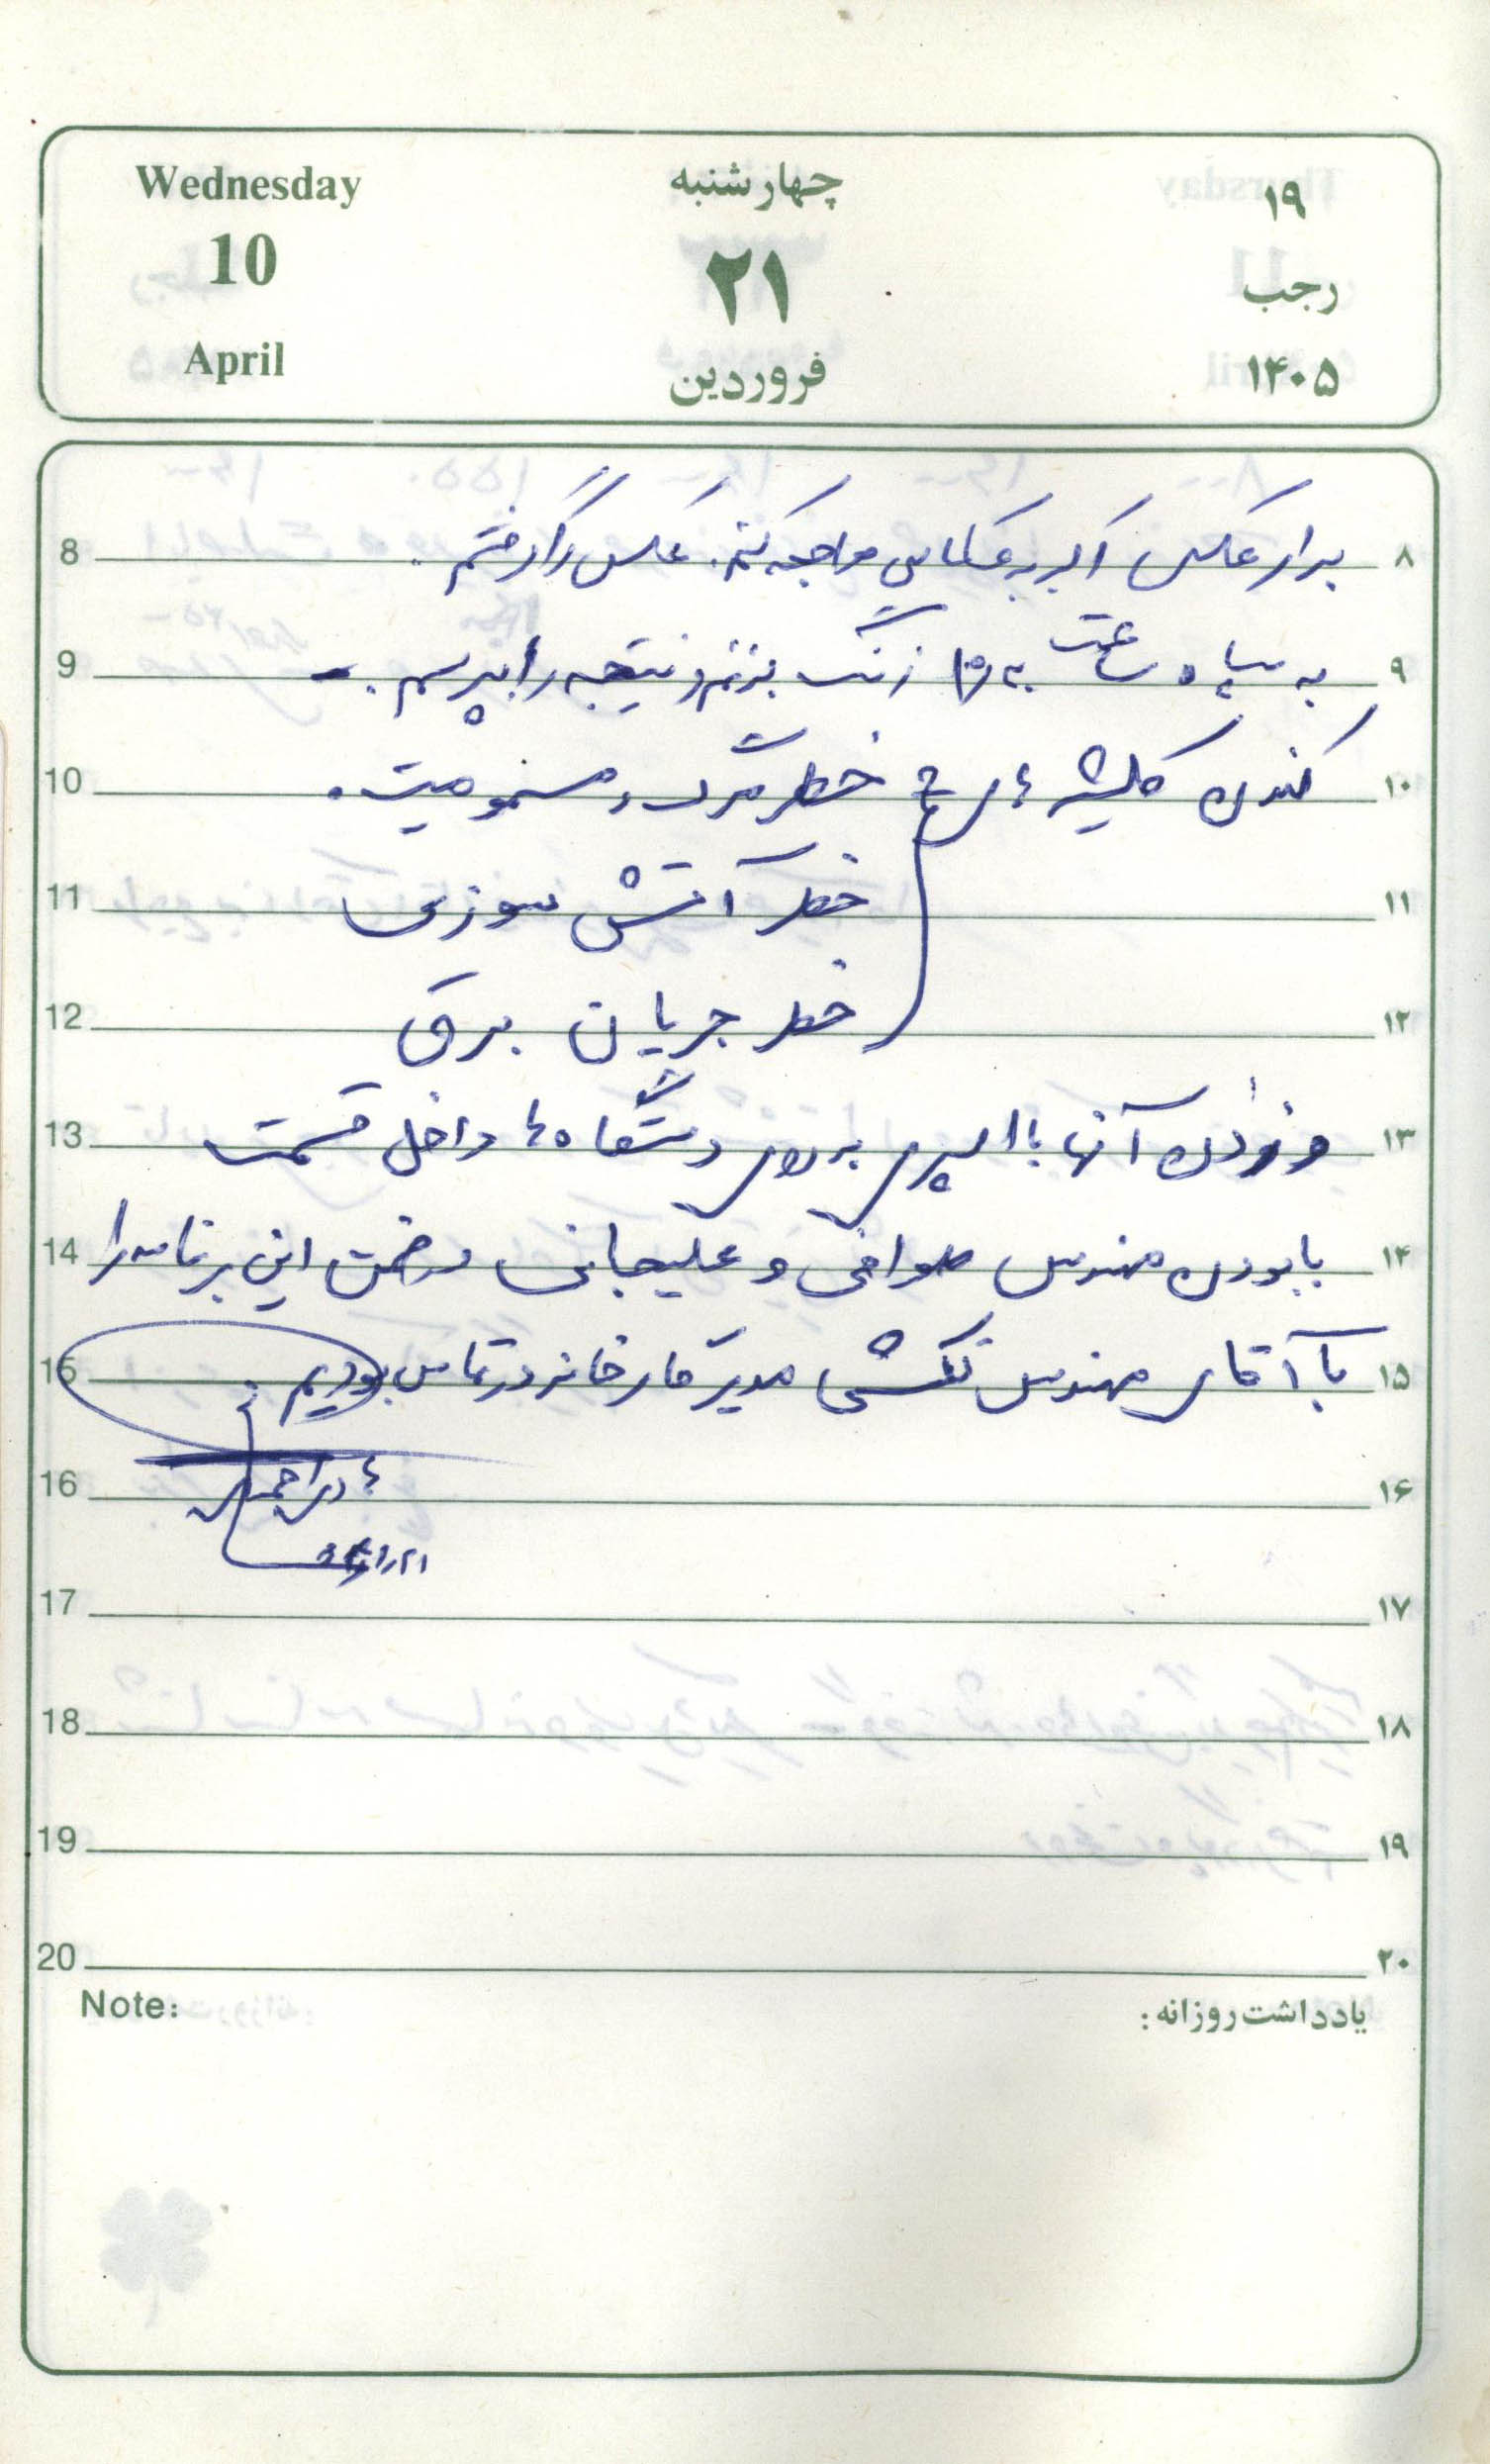 Wednesday چهارشنبه ۱۹
10 ۲۱ رجب
April فروردین ۱۴۰۵
8 برای عکس اکبر به عکاسی مراجعه کنم. عکس را گرفتم. ۸
9 به سپاه ساعت زنگ بزنم و نتیجه را بپرسم. ۹
10 کندن کلیشه های خطر مرگ و مسمومیت. ۱۰
11 خطر آتش سوزی ۱۱
12 خطر جریان برق ۱۲
13 و زدن آنها با اسپری به روی دستگاه ها داخل قسمت ۱۳
14 با بودن مهندس طوافی و علیجانی در ضمن این برنامه را ۱۴
15 با آقای مهندس تفکشی مدیر کارخانه در تماس بودیم. ۱۵
16 ۱۶
17 ۱۷
18 ۱۸
19 ۱۹
20 ۲۰
Note: یادداشت روزانه :